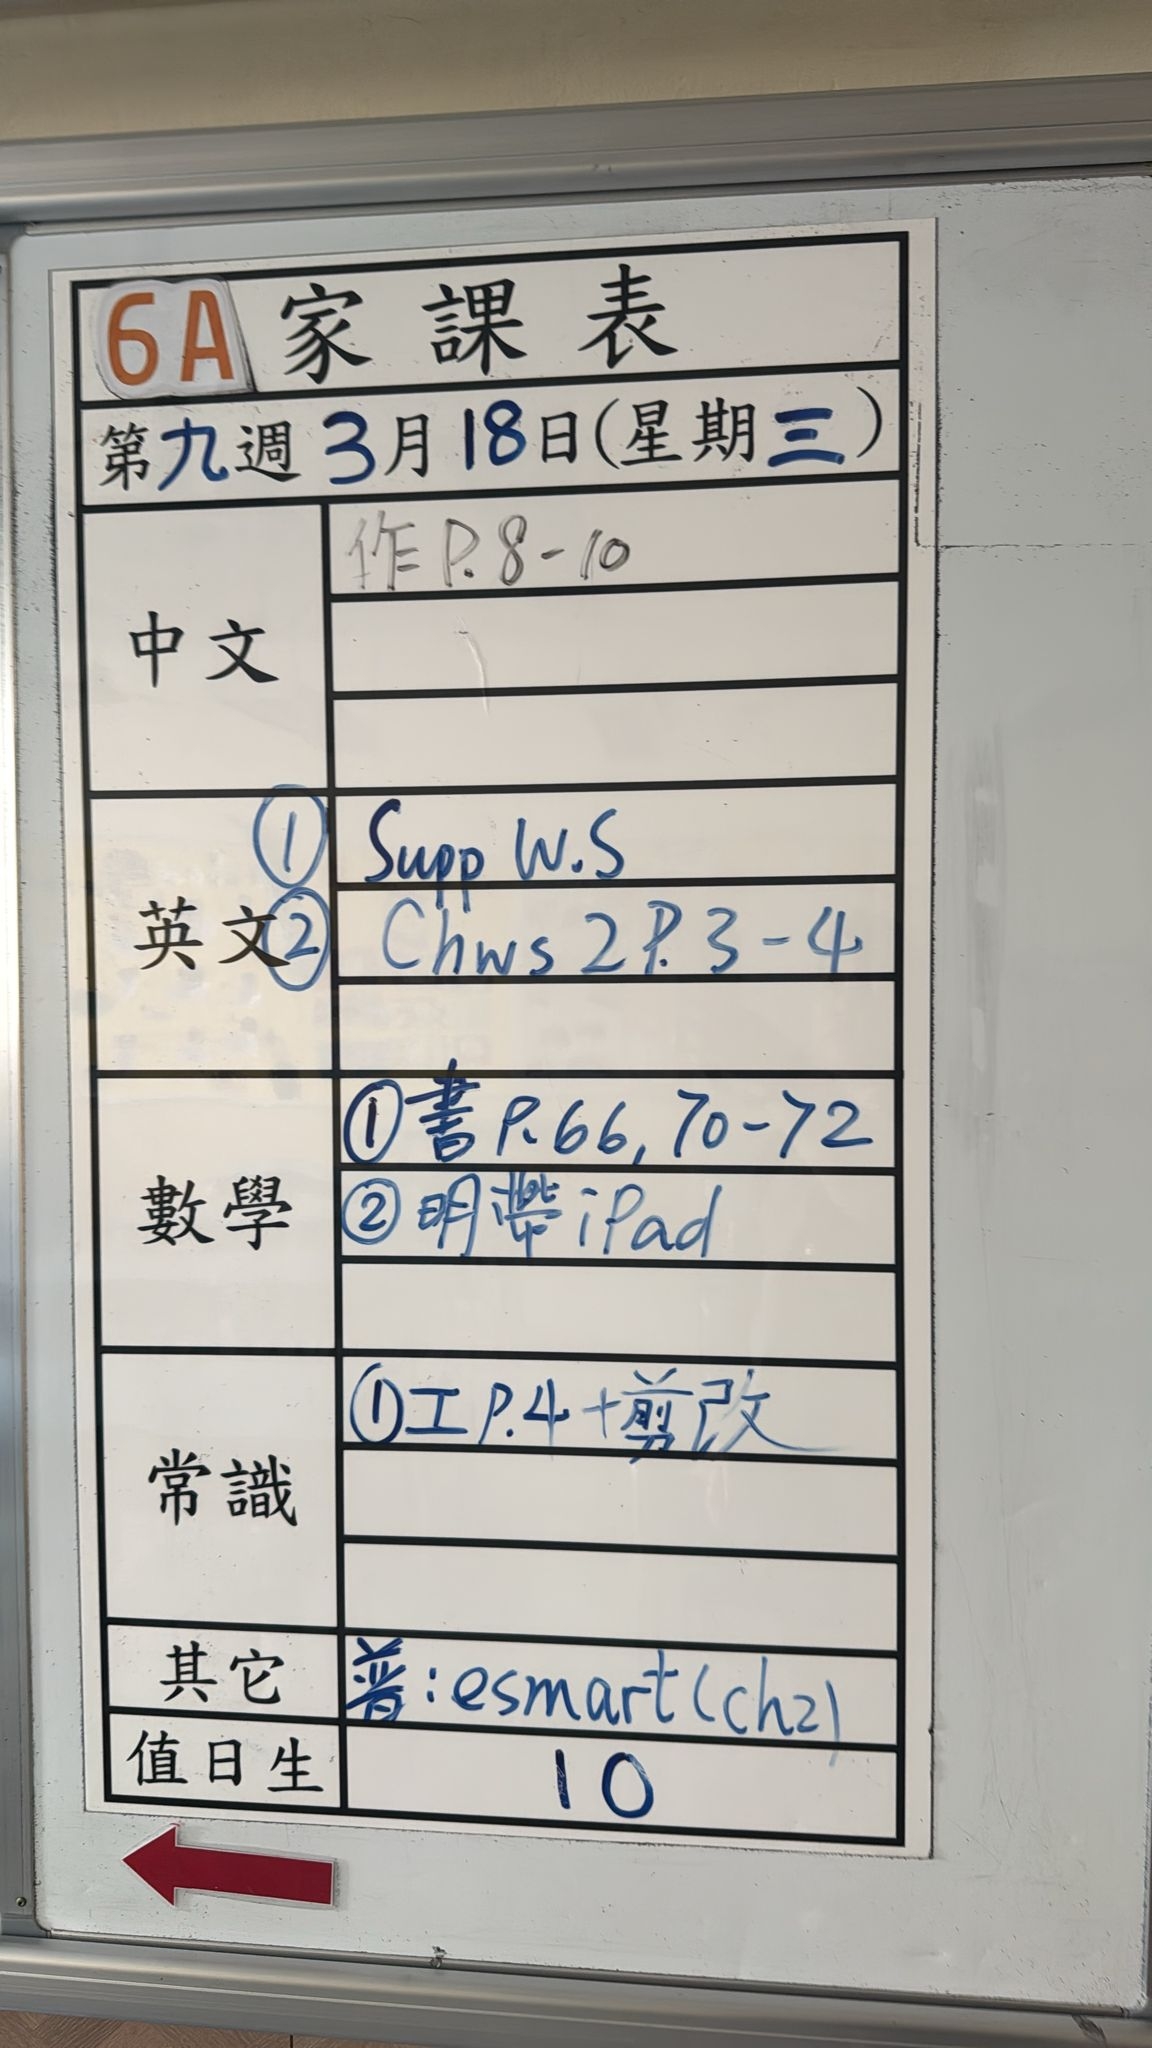 6A 家課表
第九週3月18日(星期三)
中文
作 P.8-10
英文
① Supp W.S
② Chws 2 P.3-4
數學
①書 P.66, 70-72
②明帶 iPad
常識
①工 P.4+剪改
其它
普:esmart(ch2)
值日生
10